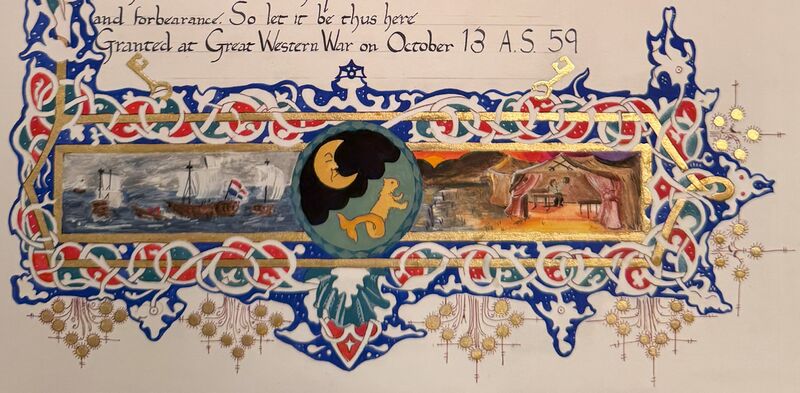 and forbearance. So let it be thus here
Granted at Great Western War on October 13 A.S. 59